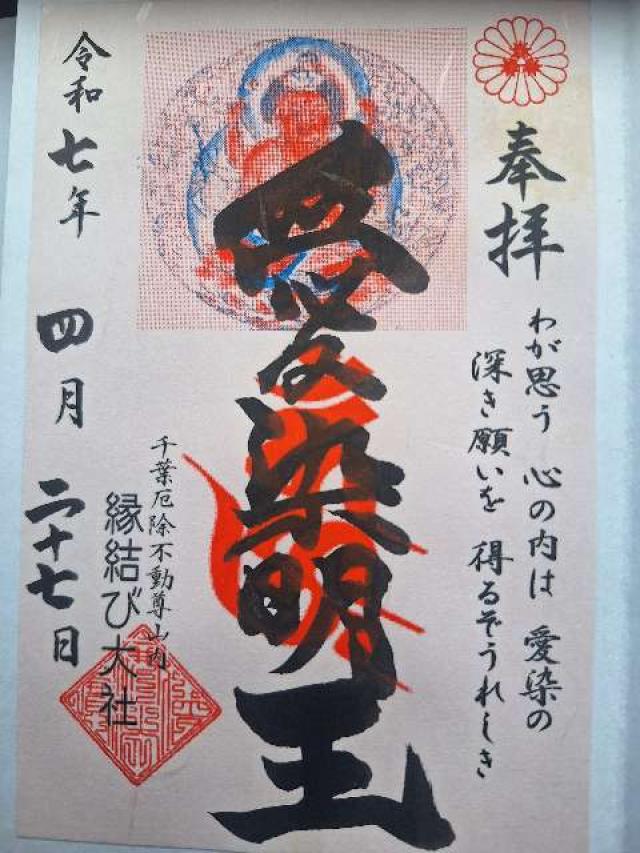 奉拝
わが思う 心の内は 愛染の
深き願いを 得るぞうれしき
愛染明王
千葉厄除不動尊山内
縁結び大社
令和七年 四月 二十七日